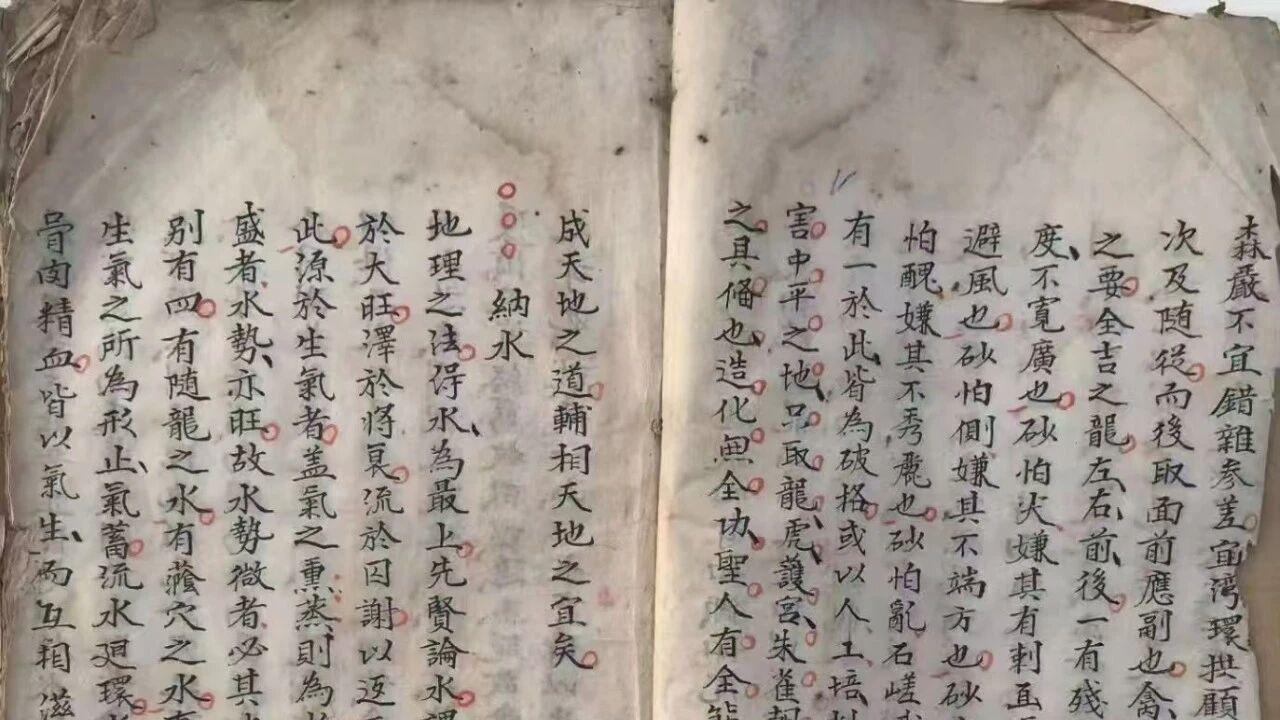 森嚴不宜錯雜参差宜湾環拱顧
次及随從而後取面前應副也禽
之要全吉之龍左右前後一有残
度不寛廣也砂怕尖嫌其有刺
避風也砂怕側嫌其不端方也砂
怕醜嫌其不秀麗也砂怕亂石嵯
有一於此皆為破格或以人工培
害中平之地品取龍虎護宫朱雀
之具俻也造化無全功聖人有全能
成天地之道輔相天地之宜矣
納水
地理之法得水為最上先賢論水謂
於大旺澤於將衰流於囚謝以返
此源於生氣者盖氣之熏蒸則為
盛者水勢亦旺故水勢微者必其
别有四有随龍之水有蔭穴之水有
生氣之所為形止氣蓄流水廻環
骨肉精血皆以氣生而互相滋